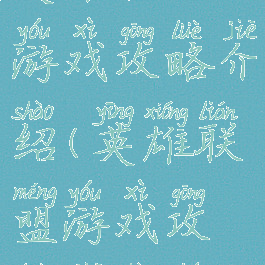 yóu xì gōng lüè jiè
游戏攻略介
shào yīng xióng lián
绍(英雄联
méng yóu xì gōng
盟游戏攻